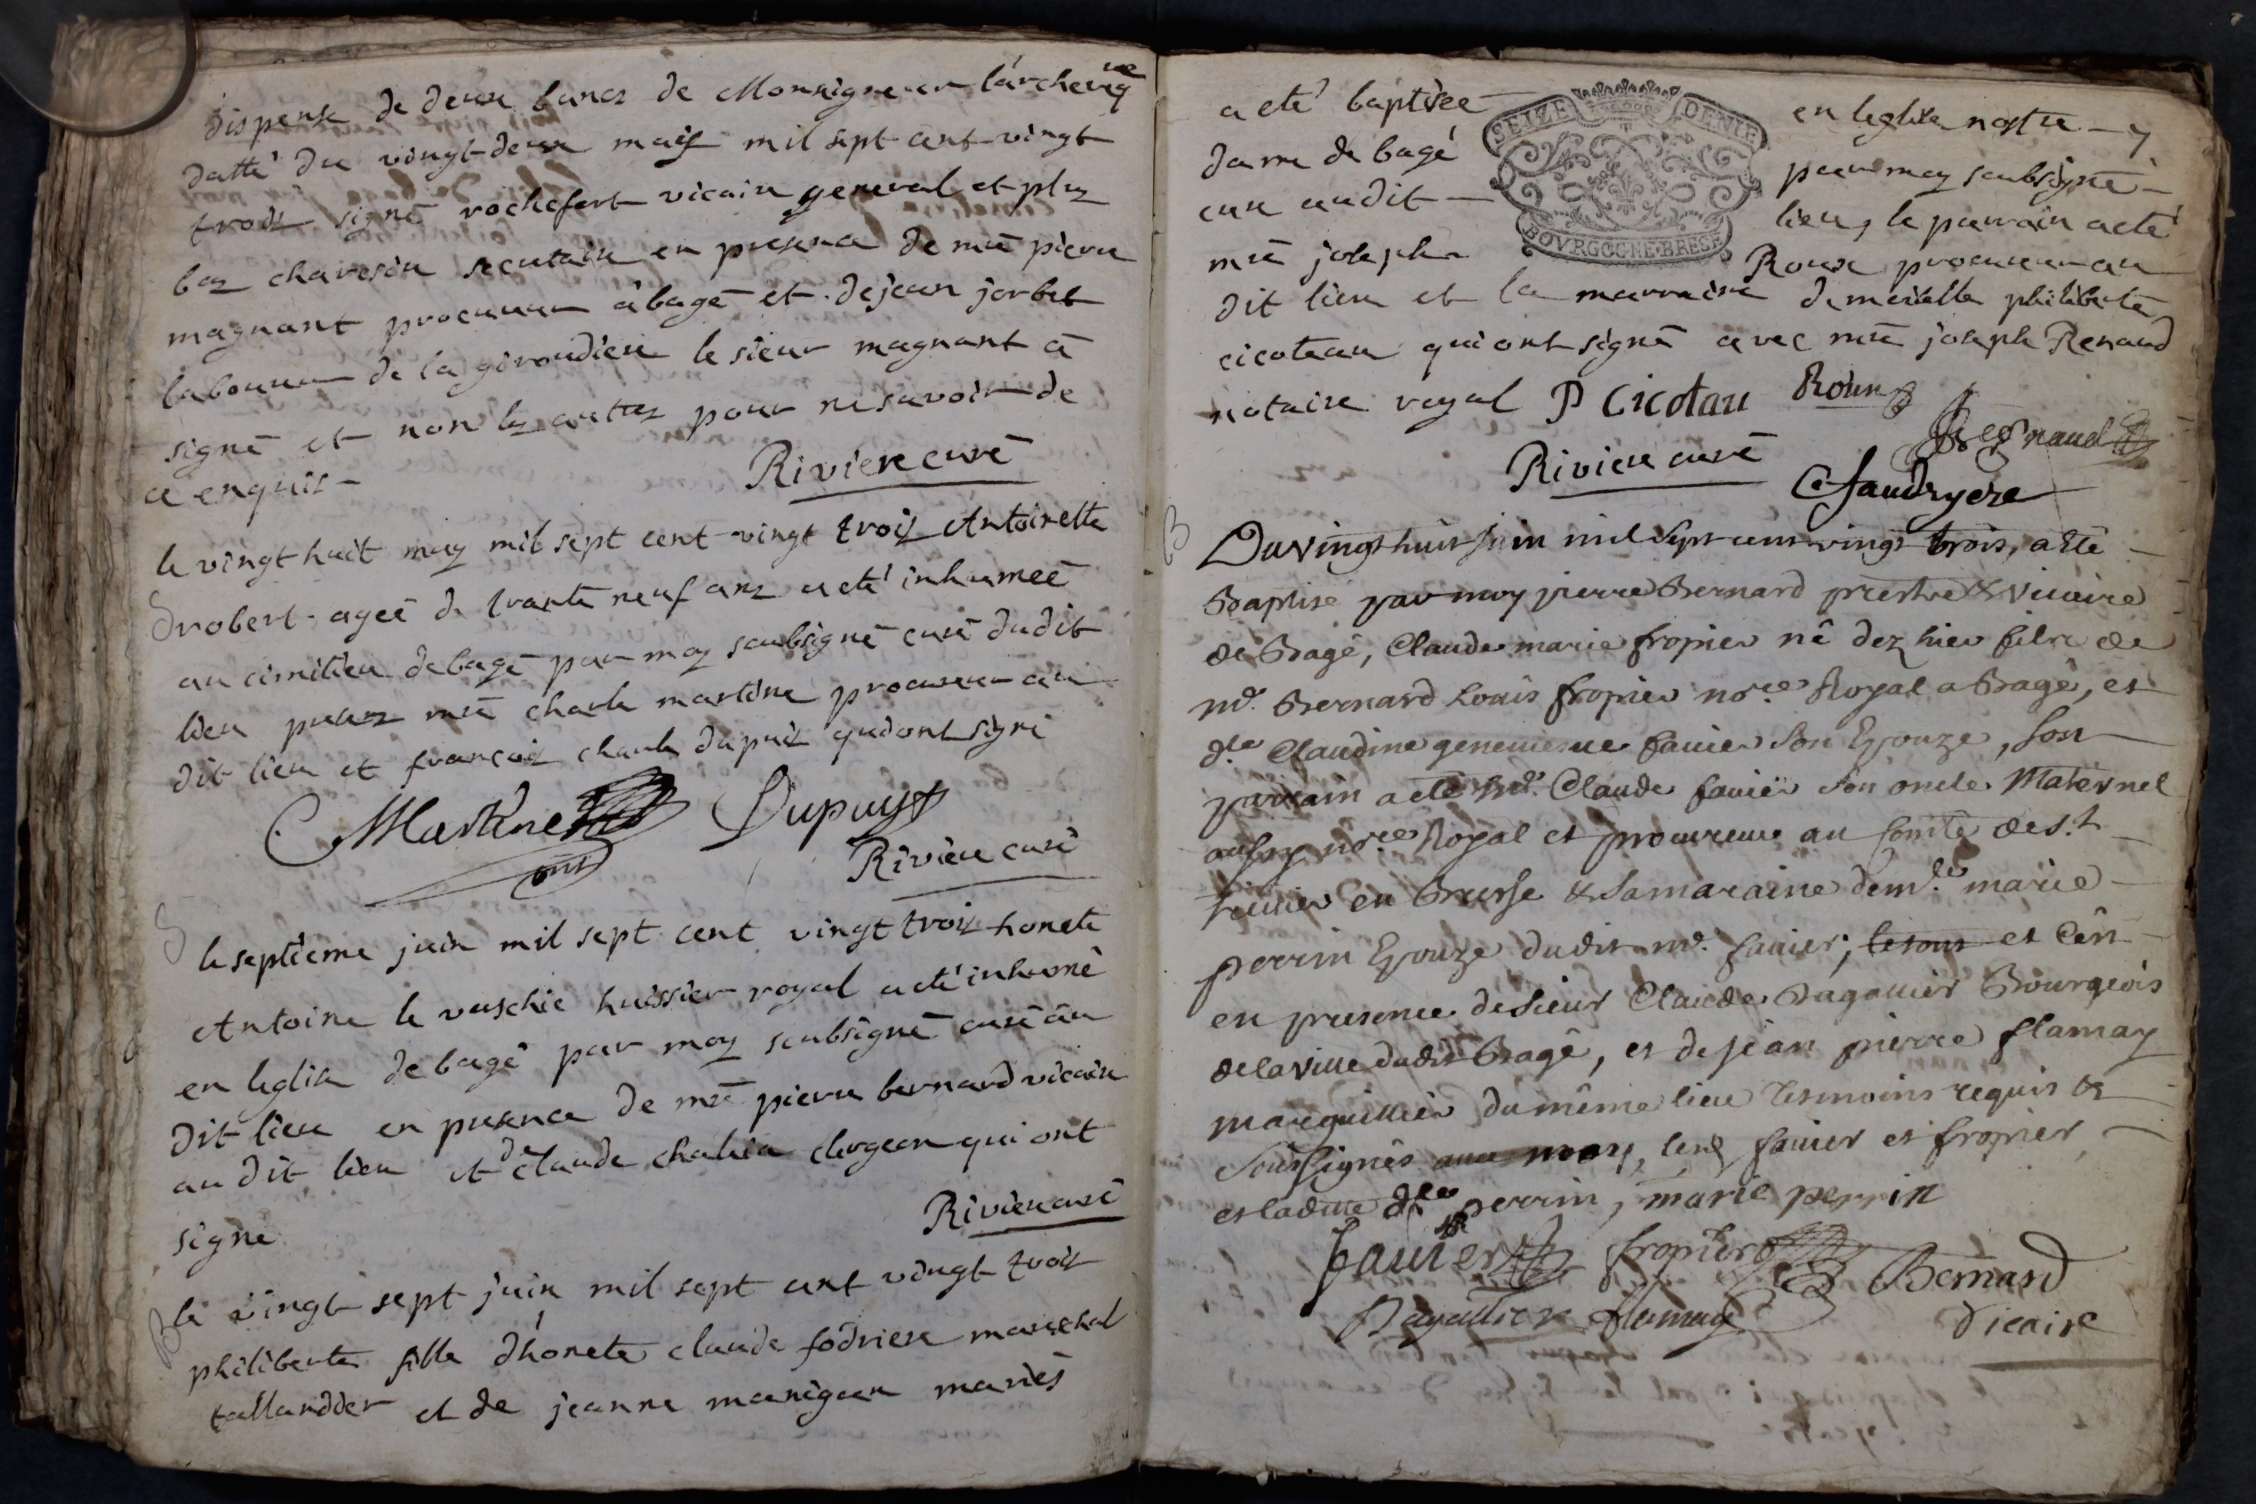 dispense de deux bancs de Monsigneur l'archeveq
ue
datté du vingt deux may mil sept cent vingt
trois signé rochefort vicaire general et plus
bas chavesin secretaire en presence de mre pierre
magnant procureur a bagé et de jean jorbet
laboureur de la giroudiere le sieur magnant a
signé et non les autres pour ne savoir de
ce enquis
Riviere curé
le vingt huit may mil sept cent vingt trois Antoinette
S
robert agée de trante neuf ans a eté inhumée
au cimitiere de bagé par moy soubsigné curé dudit
lieu presens mre charle martine procureur au
dit lieu et françois charle dupuis qui ont signé
C Martine Dupuys
Riviere curé
S
le septieme juin mil sept cent vingt trois honete
Antoine le huissier royal a eté inhumé
en leglise de bagé par moy soubsigné curé au
dit lieu en presence de mre pierre bernard vicaire
au dit lieu et de claude chirgeon qui ont
signé
Riviere curé
B
le vingt sept juin mil sept cent vingt trois
philiberte fille d'honete claude fodriere marechal
tallandier et de jeanne manigeon mariés
a eté baptisee en leglise nostre
dame de bagé par moy soubsigné
curé audit lieu, le parrain a eté
mre joseph Roux procureur au
SEIZE DENIE
BOVRGOGNE·BRESSE
dit lieu et la marraine demoiselle philiberte
cicoteau qui ont signé avec mre joseph Renaud
notaire royal P Cicotau Roux
Regnaud
Riviere curé
C faudryere
B
Du vingt huit juin mil sept cent vingt trois, a eté
Baptisé par moy pierre Bernard prestre & vicaire
de Bagé, Claude marie fropier né dez hier fils de
mr. Bernard Louis fropier nore. Royal a Bagé, et
dlle Claudine genevieve favier son Epouze, son
parrain a eté mr. Claude favier son oncle Maternel
aussy nore Royal et procureur au Comté de st
trivier en Bresse & sa maraine demlle marie
perrin Epouze dudit mr. favier; le tout et
en presence de sieur Claude Dagallier Bourgeois
de la ville dudit Bagé, et de jean pierre flamay
marguillier du même lieu tesmoins requis &
soussignés avec moy, lesd favier et fropier
et laditte dlle perrin, marie perrin
favier fropier Bernard
Dagallier flamay vicaire